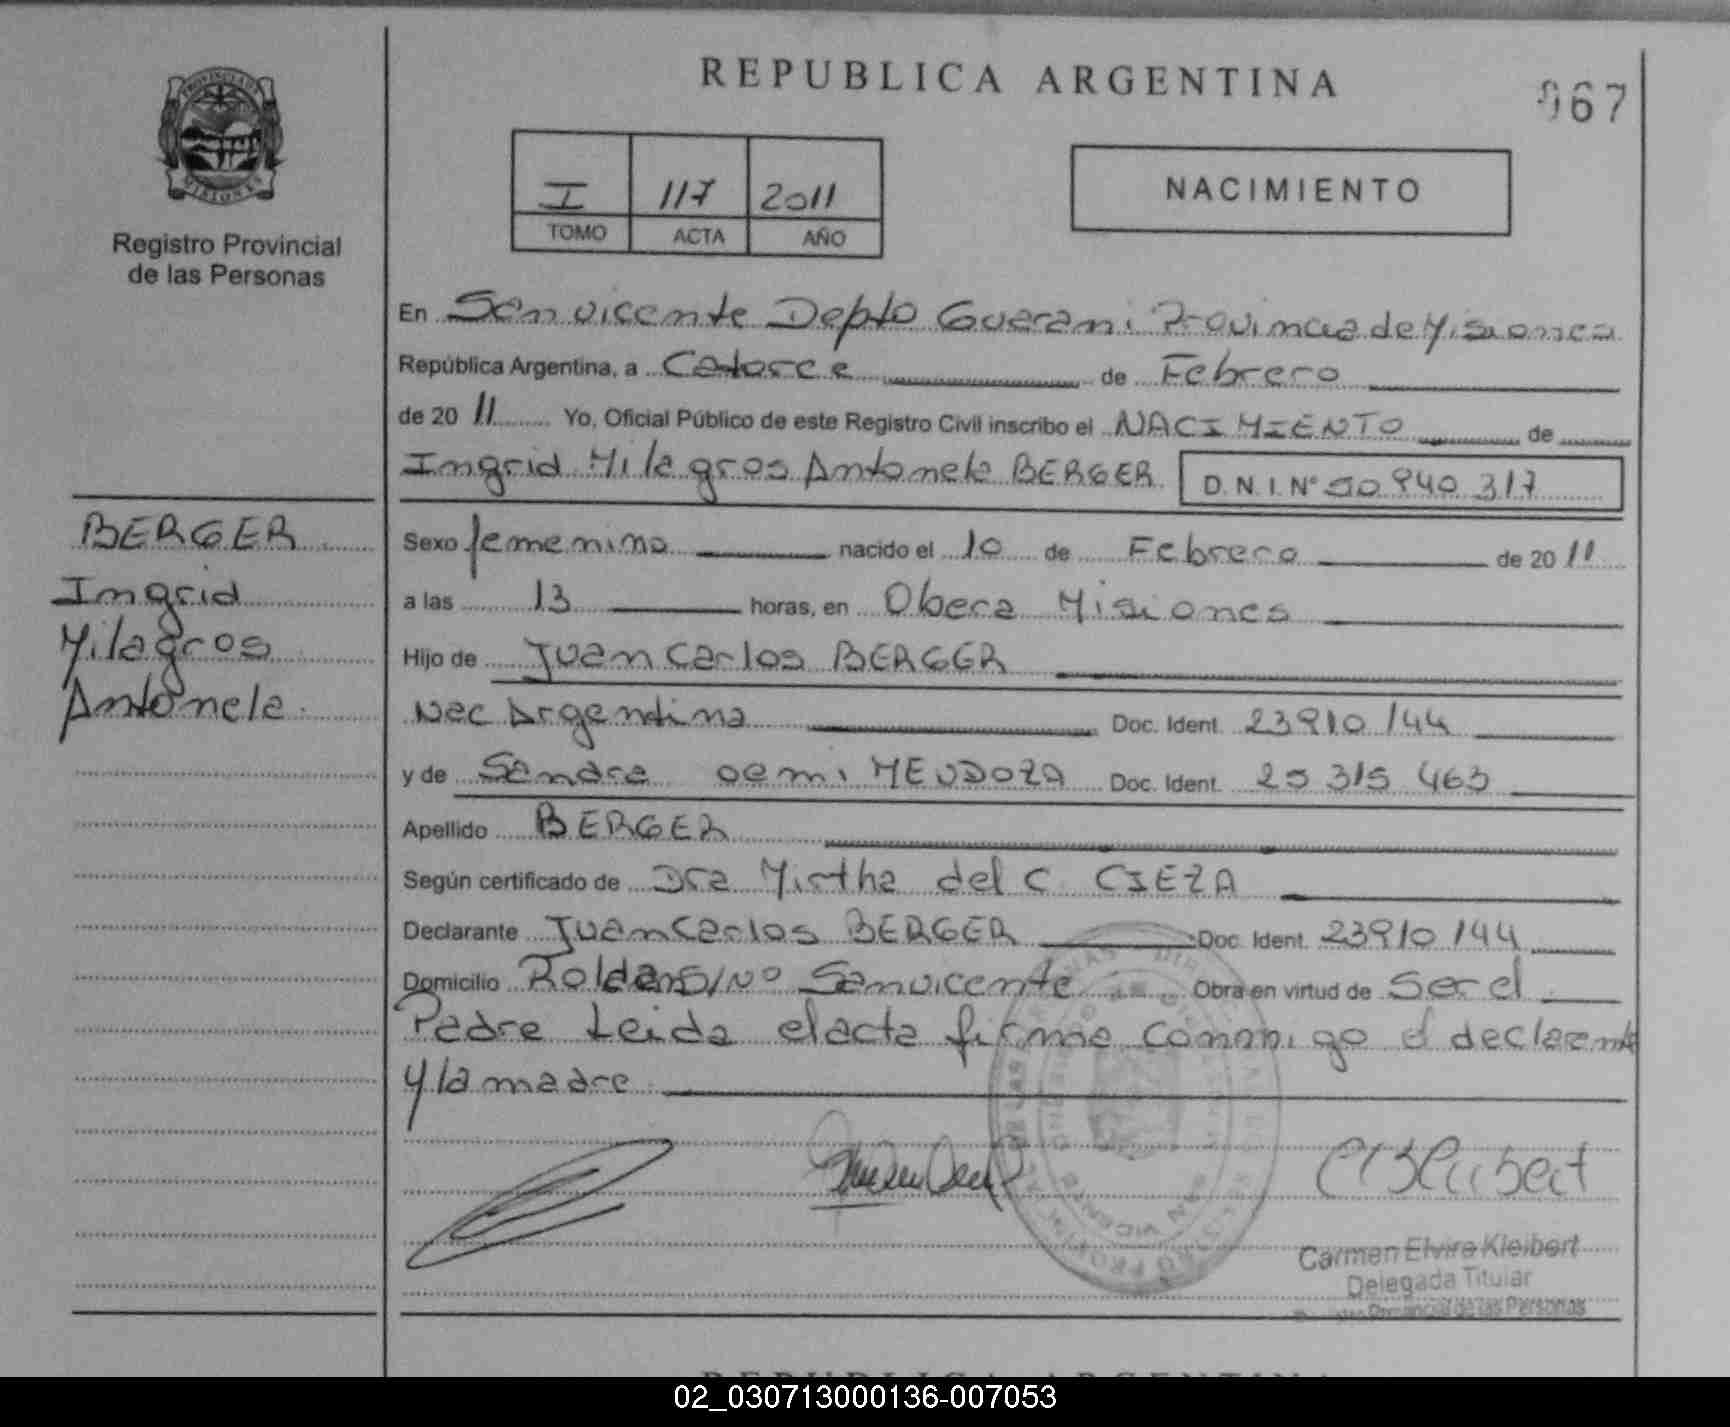 REPUBLICA ARGENTINA
067
PROVINCIA DE
MISIONES
Registro Provincial
de las Personas
I 117 2011
TOMO ACTA AÑO
NACIMIENTO
En San vicente Depto Guarani Provincia de Misiones
República Argentina, a Catorce de Febrero
de 20 11 Yo, Oficial Público de este Registro Civil inscribo el NACIMIENTO de
Ingrid Milagros Antonela BERGER D.N.I.Nº 50 940 317
BERGER
Ingrid
Milagros
Antonela
Sexo femenino nacido el 10 de Febrero de 20 11
a las 13 horas, en Obera Misiones
Hijo de Juan Carlos BERGER
Nac Argentina Doc. Ident. 23910 144
y de Sandra oemi MENDOZA Doc. Ident. 25 315 463
Apellido BERGER
Según certificado de Dra Mirtha del C CIEZA
Declarante Juan Carlos BERGER Doc. Ident. 23910 144
Domicilio Roldan S/Nº San vicente Obra en virtud de Ser el
Padre Leida el acta firma conmigo el declarante
y la madre
Carmen Elvira Kleibert
Delegada Titular
Provincial de las Personas
SAN VICENTE
REPUBLICA ARGENTINA
02_030713000136-007053